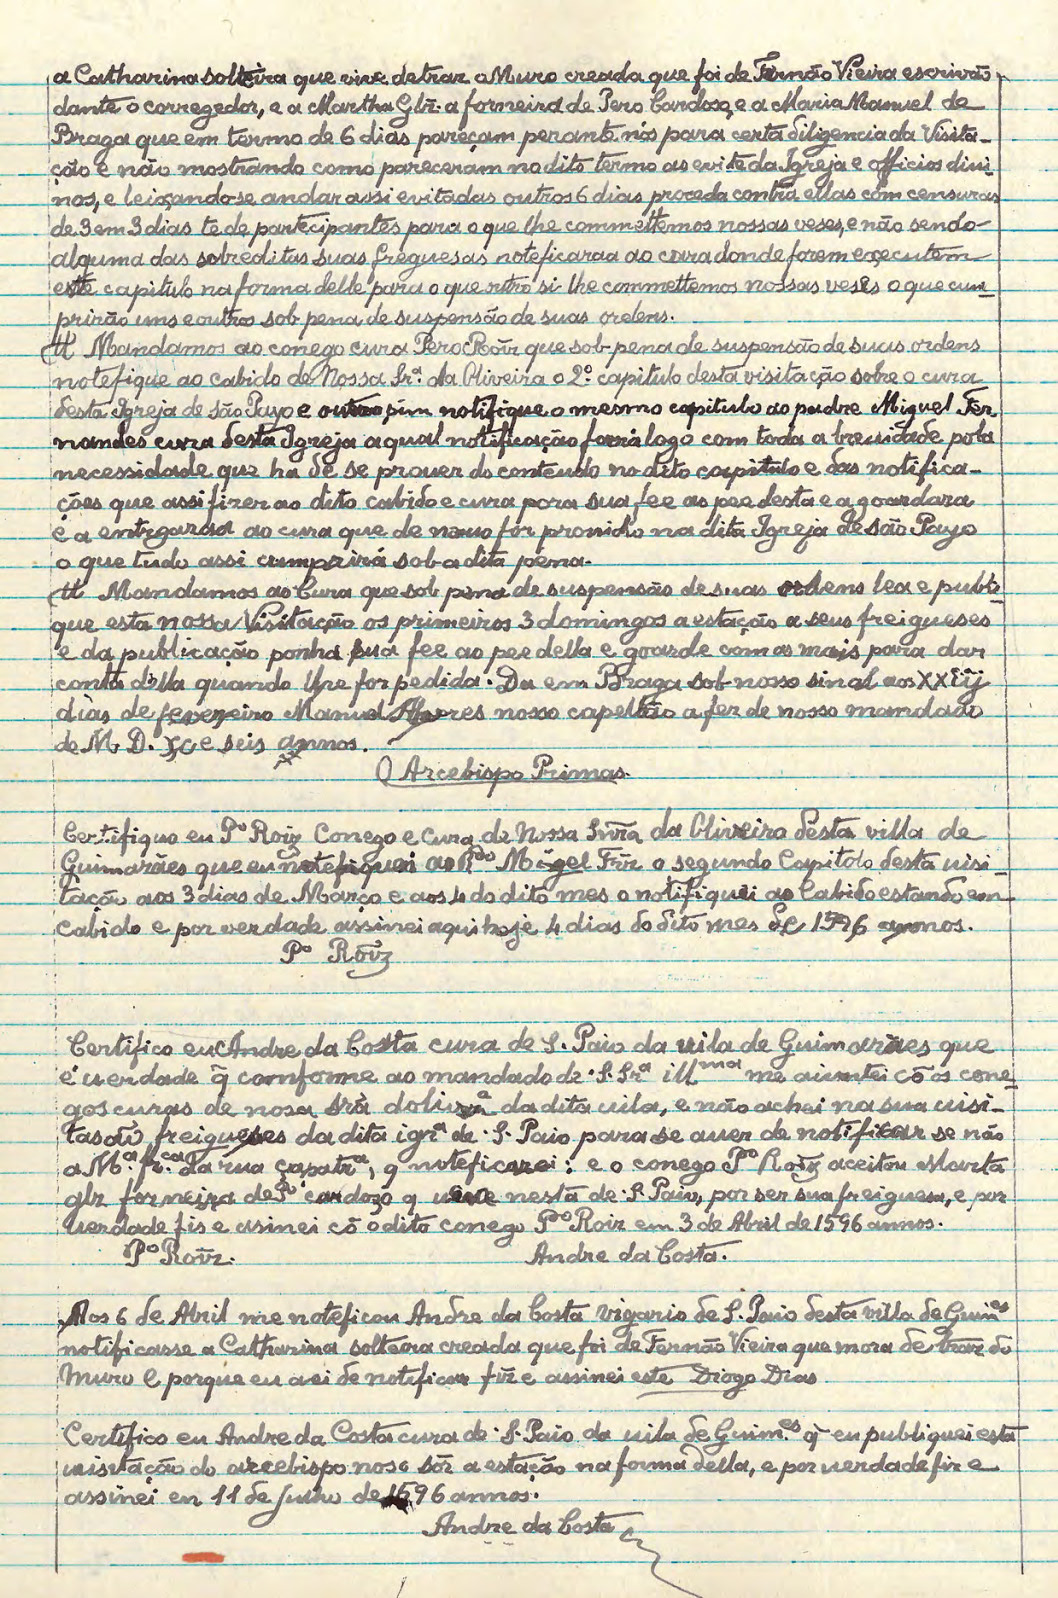 a Catharina solteira que vive detraz o Muro creada que foi de Fernão Vieira escrivão
dante o corregedor, e a Martha Glz. a forneira de Pero Cardoso, e a Maria Manuel de
Braga que em termo de 6 dias pareçam perante nós para certa diligencia da Visita-
ção e não mostrando como pareceram no dito termo as evite da Igreja e officios divi-
nos, e leixandose andar assi evitadas outros 6 dias proceda contra ellas com censuras
de 3 em 3 dias te de participantes para o que lhe commettemos nossas veses, e não sendo
alguma das sobreditas suas freguesas noteficaraa ao cura donde forem executem
este capitulo na forma delle para o que outro si lhe commettemos nossas vesês o que cum-
prirão uns e outros sob pena de suspensão de suas ordens.
It Mandamos ao conego cura Pero Roĩz que sob pena de suspensão de suas ordens
notefique ao cabido de Nossa Srª. da Oliveira o 2º capitulo desta visitação sobre o cura
desta Igreja de são Payo e outro sim notifique o mesmo capitulo ao padre Miguel Fer
nandes cura desta Igreja a qual notificação fará logo com toda a brevidade pola
necessidade que ha de se prover do conteudo no dito capitulo e das notifica-
ções que assi fizer ao dito cabido e cura pora sua fee ao pee desta e a goardara
e a entregaraa ao cura que de novo for provido na dita Igreja de são Payo
o que tudo assi cumprirá sob a dita pena.
It Mandamos ao Cura que sob pena de suspensão de suas ordens lea e publi-
que esta nossa Visitação os primeiros 3 domingos a estação a seus freigueses
e da publicação ponha sua fee ao pee della e goarde com as mais para dar
conta della quando lhe for pedida. Da em Braga sob nosso sinal aos XXiij
dias de fevereiro Manuel Alvares nosso capellão a fez de nosso mandado
de M. D. XC e seis annos.
O Arcebispo Primas.
Certifiquo eu Pº Roiz Conego e Cura de Nossa Snrã da Oliveira desta villa de
Guimarães que eu notefiquei ao Pdo Migel Frz o segundo Capitolo desta visi-
tação aos 3 dias de Março e aos 4 do dito mes o notifiquei ao Cabido estando em
Cabido e por verdade assinei aqui hoje 4 dias do dito mes de 1596 annos.
Pº Roĩz
Certifico eu Andre da Costa cura de S. Paio da uila de Guimarães que
é uerdade q̃ comforme ao mandado de S. Srª illma me aiuntei cõ os cone-
gos curas de nosa srã doliurª da dita uila, e não achei na sua uisi-
tasaõ freigueses da dita igrª de S. Paio para se auer de notificar se não
a Mª. frca. da rua çapatrª, q̃ noteficarei: e o conego Pº Roiz aceitou Marta
glz forneira de Pº cardozo q̃ uiue nesta de S. Paio, por ser sua freiguesa, e por
uerdade fis e asinei cõ o dito conego Pº Roiz em 3 de Abril de 1596 annos.
Pº Roĩz. Andre da Costa.
Aos 6 de Abril me noteficou Andre da Costa vigario de S. Paio desta villa de Guimes
notificasse a Catharina solteira creada que foi de Fernão Vieira que mora de traz do
Muro e porque eu a ei de notificar fiz e assinei este Diogo Dias
Certifico eu Andre da Costa cura de S. Paio da uila de Guim.es q̃ eu publiquei esta
uisitação do arcebispo noso sõr a estação na forma della, e por uerdade fiz e
assinei en 11 de Julho de 1596 annos.
Andre da Costa